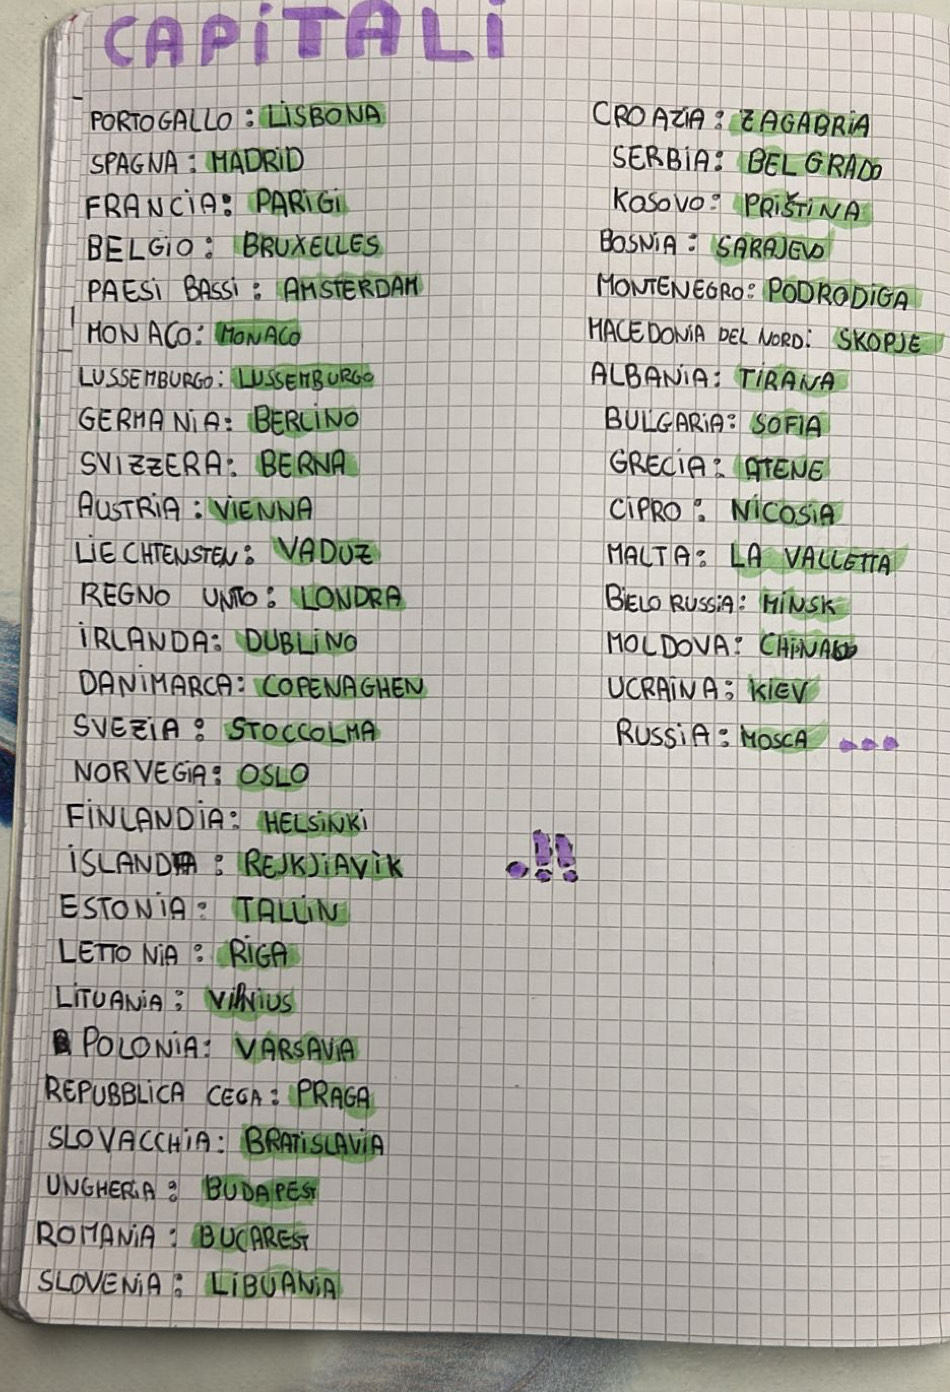 CAPITALI
PORTOGALLO: LISBONA
SPAGNA: MADRID
FRANCIA: PARIGI
BELGIO: BRUXELLES
PAESI BASSI: AMSTERDAM
MONACO: MONACO
LUSSEMBURGO: LUSSEMBURGO
GERMANIA: BERLINO
SVIZZERA: BERNA
AUSTRIA: VIENNA
LIECHTENSTEN: VADUZ
REGNO UNTO: LONDRA
IRLANDA: DUBLINO
DANIMARCA: COPENAGHEN
SVEZIA: STOCCOLMA
NORVEGIA: OSLO
FINLANDIA: HELSINKI
ISLANDA: REJKJIAVIK
ESTONIA: TALLIN
LETTONIA: RIGA
LITUANIA: VILNIUS
POLONIA: VARSAVIA
REPUBBLICA CECA: PRAGA
SLOVACCHIA: BRATISLAVIA
UNGHERIA: BUDAPEST
ROMANIA: BUCAREST
SLOVENIA: LIBUANIA
CROAZIA: ZAGABRIA
SERBIA: BELGRADO
KOSOVO: PRIŠTINA
BOSNIA: SARAJEVO
MONTENEGRO: PODRODIGA
MACEDONIA DEL NORD: SKOPJE
ALBANIA: TIRANA
BULGARIA: SOFIA
GRECIA: ATENE
CIPRO: NICOSIA
MALTA: LA VALLETTA
BIELORUSSIA: MINSK
MOLDOVA:
UCRAINA: KIEV
RUSSIA: MOSCA ...
.!!